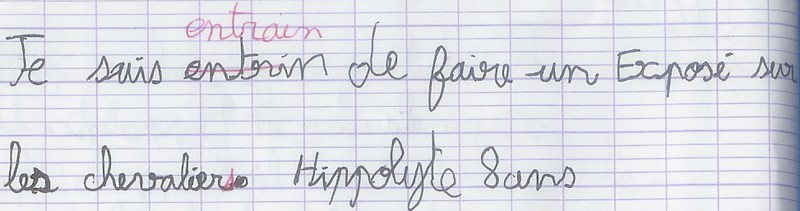 entrain
Je suis entrin de faire un Exposé sur
les chevaliers Hippolyte 8ans